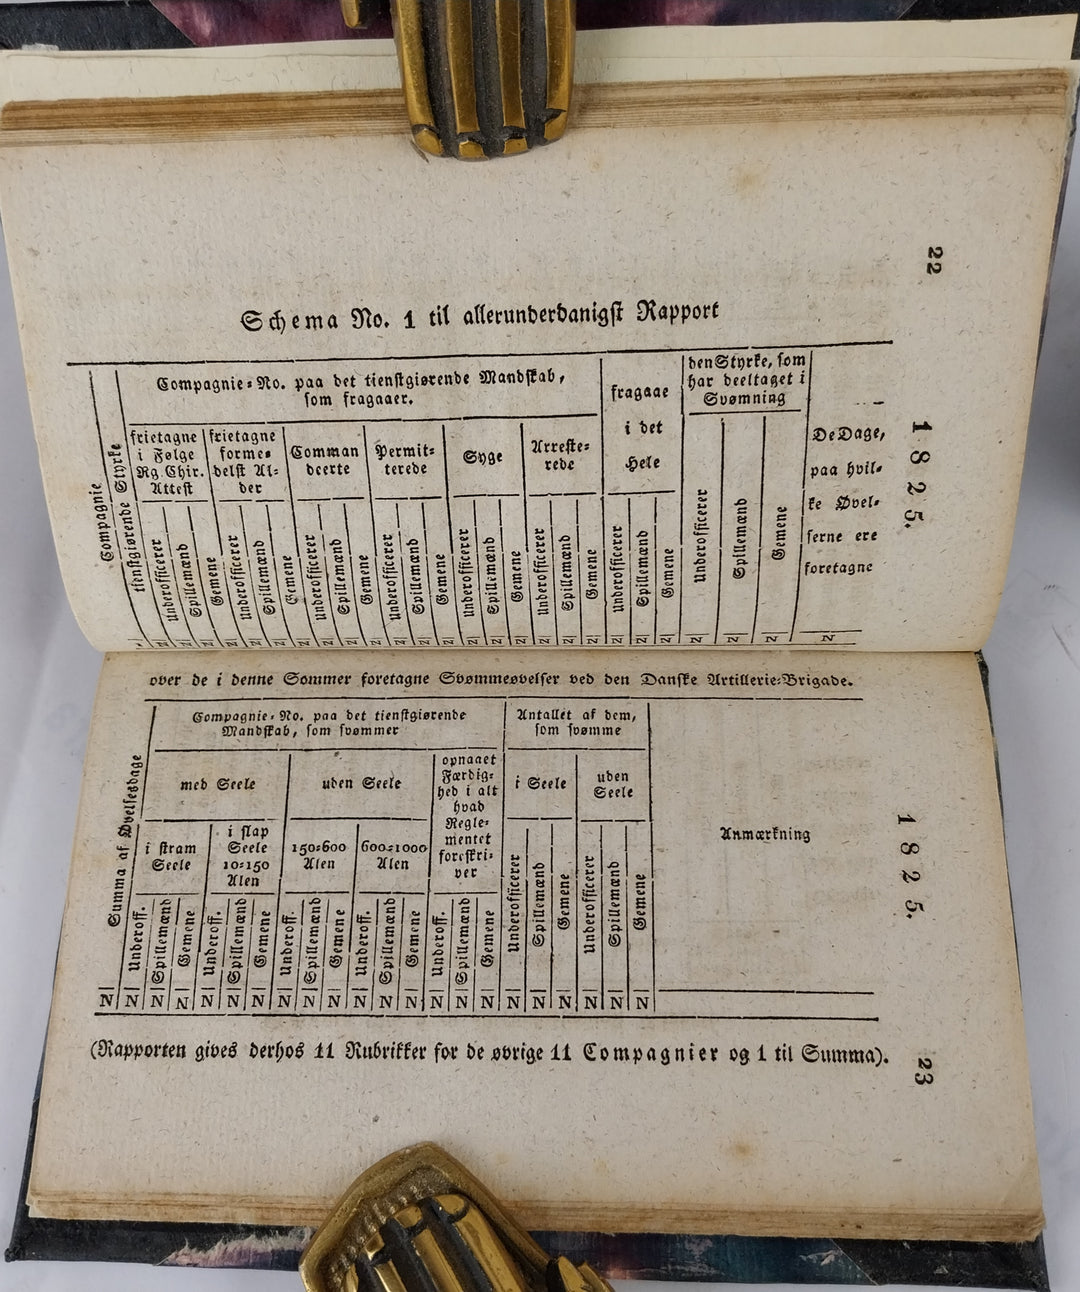 22
1825.
Schema No. 1 til allerunderdanigst Rapport
Compagnie
tienstgiørende Styrke
Compagnie-No. paa det tienstgiørende Mandskab,
som fragaaer.
frietagne
i Følge
Rg. Chir.
Attest
frietagne
forme-
delst Al-
der
Comman
deerte
Permit-
terede
Syge
Arreste-
rede
fragaae
i det
Hele
den Styrke, som
har deeltaget i
Svømning
De Dage,
paa hvil-
ke Øvel-
serne ere
foretagne
Underofficerer
Spillemænd
Gemene
Underofficerer
Spillemænd
Gemene
Underofficerer
Spillemænd
Gemene
Underofficerer
Spillemænd
Gemene
Underofficerer
Spillemænd
Gemene
Underofficerer
Spillemænd
Gemene
Underofficerer
Spillemænd
Gemene
Underofficerer
Spillemænd
Gemene
N N N N N N N N N N N N N N N N N N N N N N N N N
over de i denne Sommer foretagne Svømmeøvelser ved den Danske Artillerie-Brigade.
Summa af Øvelsesdage
Compagnie-No. paa det tienstgiørende
Mandskab, som svømmer
med Seele
i stram
Seele
i slap
Seele
10-150
Alen
uden Seele
150-600
Alen
600-1000
Alen
opnaaet
Færdig-
hed i alt
hvad
Regle-
mentet
foreskri-
ver
Antallet af dem,
som svømme
i Seele
uden
Seele
Anmærkning
Underoff.
Spillemænd
Gemene
Underoff.
Spillemænd
Gemene
Underoff.
Spillemænd
Gemene
Underoff.
Spillemænd
Gemene
Underoff.
Spillemænd
Gemene
Underofficerer
Spillemænd
Gemene
Underofficerer
Spillemænd
Gemene
N N N N N N N N N N N N N N N N N N N N N N
(Rapporten gives derhos 11 Rubrikker for de øvrige 11 Compagnier og 1 til Summa).
1825.
23